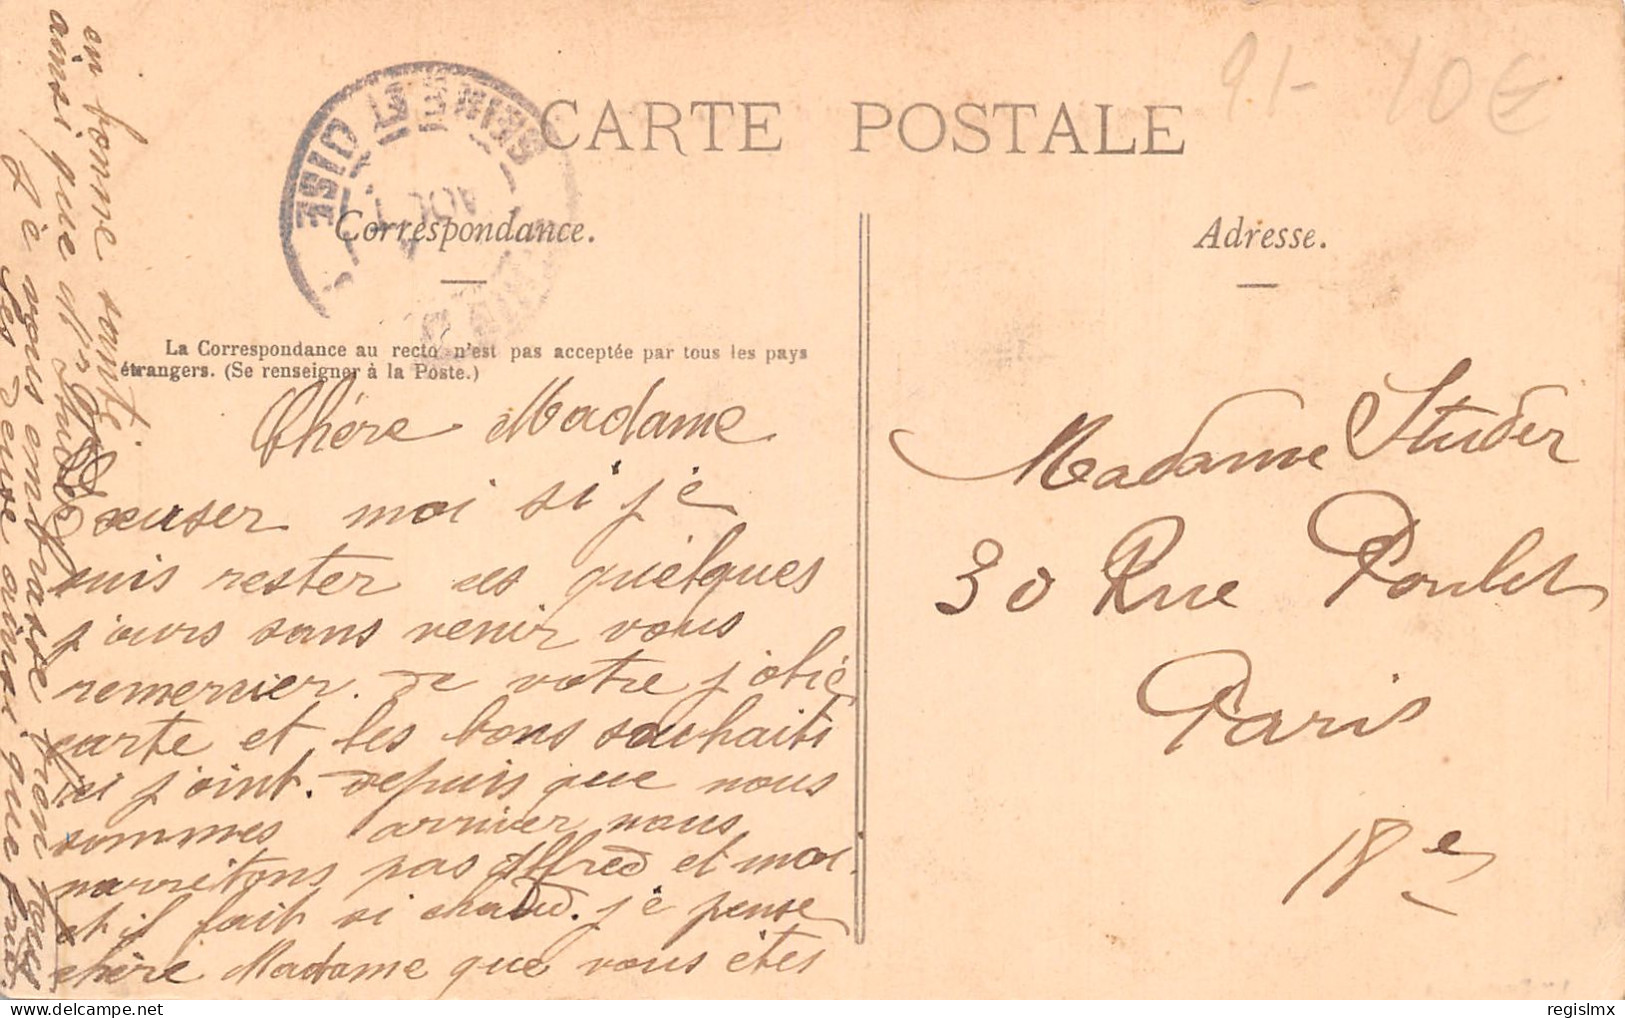 91- 10€
CARTE POSTALE
SEINE ET OISE
AOU
Correspondance.
Adresse.
La Correspondance au recto n'est pas acceptée par tous les pays
étrangers. (Se renseigner à la Poste.)
Chère Madame
Excuser moi si je
suis rester ces quelques
jours sans venir vous
remercier de votre jolie
carte et les bons souhaits
ci joint. depuis que nous
sommes arriver nous
narretons pas Alfred et moi
et il fait si chaud. je pense
chère Madame que vous êtes
en bonne santé
ainsi que Mr Studer
Je vous embrasse bien tous
les deux ainsi que
Madame Studer
30 Rue Poulet
Paris
18e
regislmx